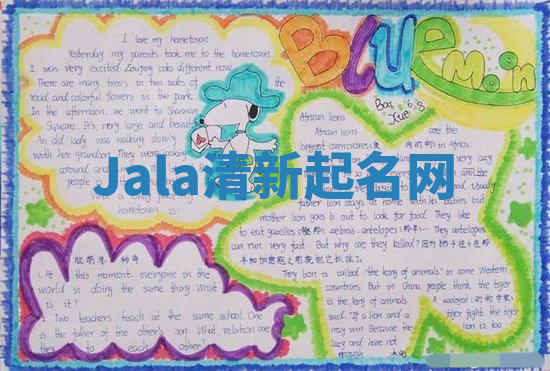 I love my hometown
Yesterday my parents took me to the hometown
I was very excited Zouping looks different now.
There are many trees in two sides of the
road and colorful flowers in the park.
In the afternoon, we went to Shannan
Square. It's very large and
An old lady was walking slowly
with her grandson. They were
around and
people
What a
hometown is!
BLUE Moon
Ban 6.8
Xue
African lions
African lions are the
biggest carnivores
in Africa
very lazy
Usually
father lion stays at home with its babies but
mother lion goes out to look for food. They like
to eat gazelles zebras, antelopes They antelopes
can run very fast. But why are they killed?
They lion is called "the king of animals" in some Western
countries. But in China people think the tiger
is the king of animals. A zoologist
said. "If a lion and a tiger fight the tiger
may win Because the lion is too
lazy and have not
enough
Jala清新起名网
脑筋急转弯
(At this moment, everyone in the
world is doing the same thing. What
is it?
Two teachers teach at the same school. One
is the father of the other's son. What relation are
they to each other?